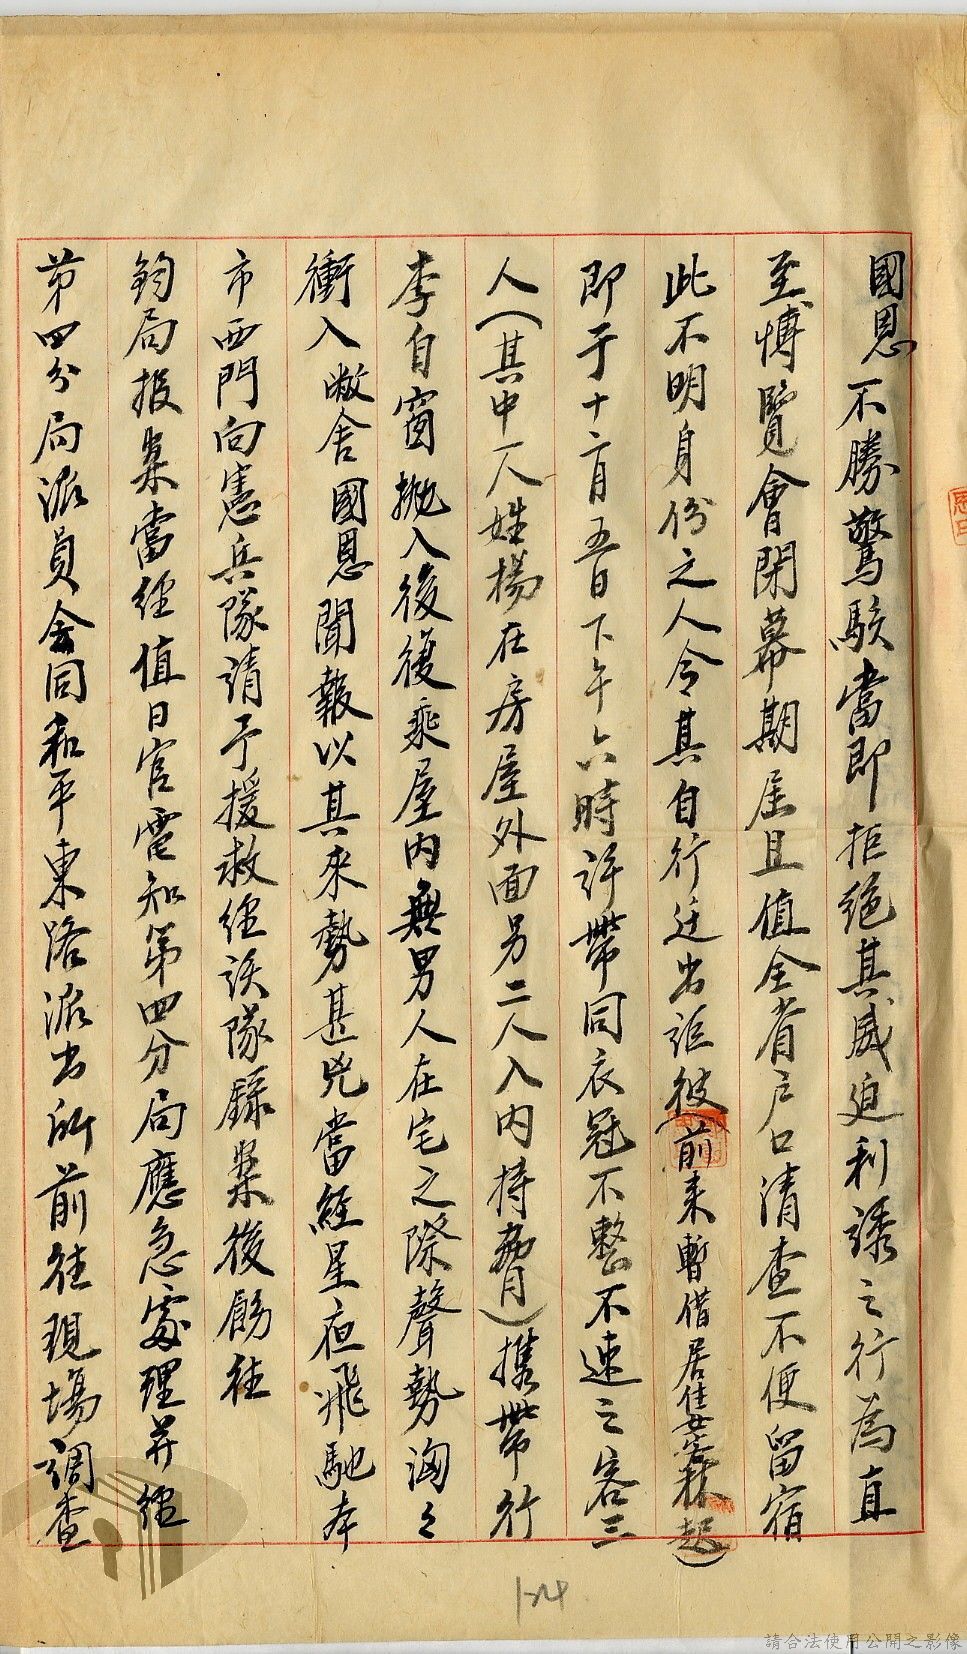 國恩不勝驚駭當即拒絕其威迫利誘之行為直
至博覽會閉幕期屆且值全省戶口清查不便留宿
此不明身份之人令其自行迁出詎彼(前来暫借居住女客林起)
即于十二月五日下午六時許帶同衣冠不整不速之客三
人(其中一人姓楊在房屋外面另二人入內持脅)携帶行
李自窗拋入後復乘屋內無男人在宅之際聲勢洶々
衝入敝舍國恩聞報以其來勢甚兇當經星夜飛馳本
市西門向憲兵隊請予援救經该隊錄案後飭往
鈞局报案當經值日官電知第四分局應急處理并經
第四分局派員會同和平東路派出所前往現場調查
124
請合法使用公開之影像